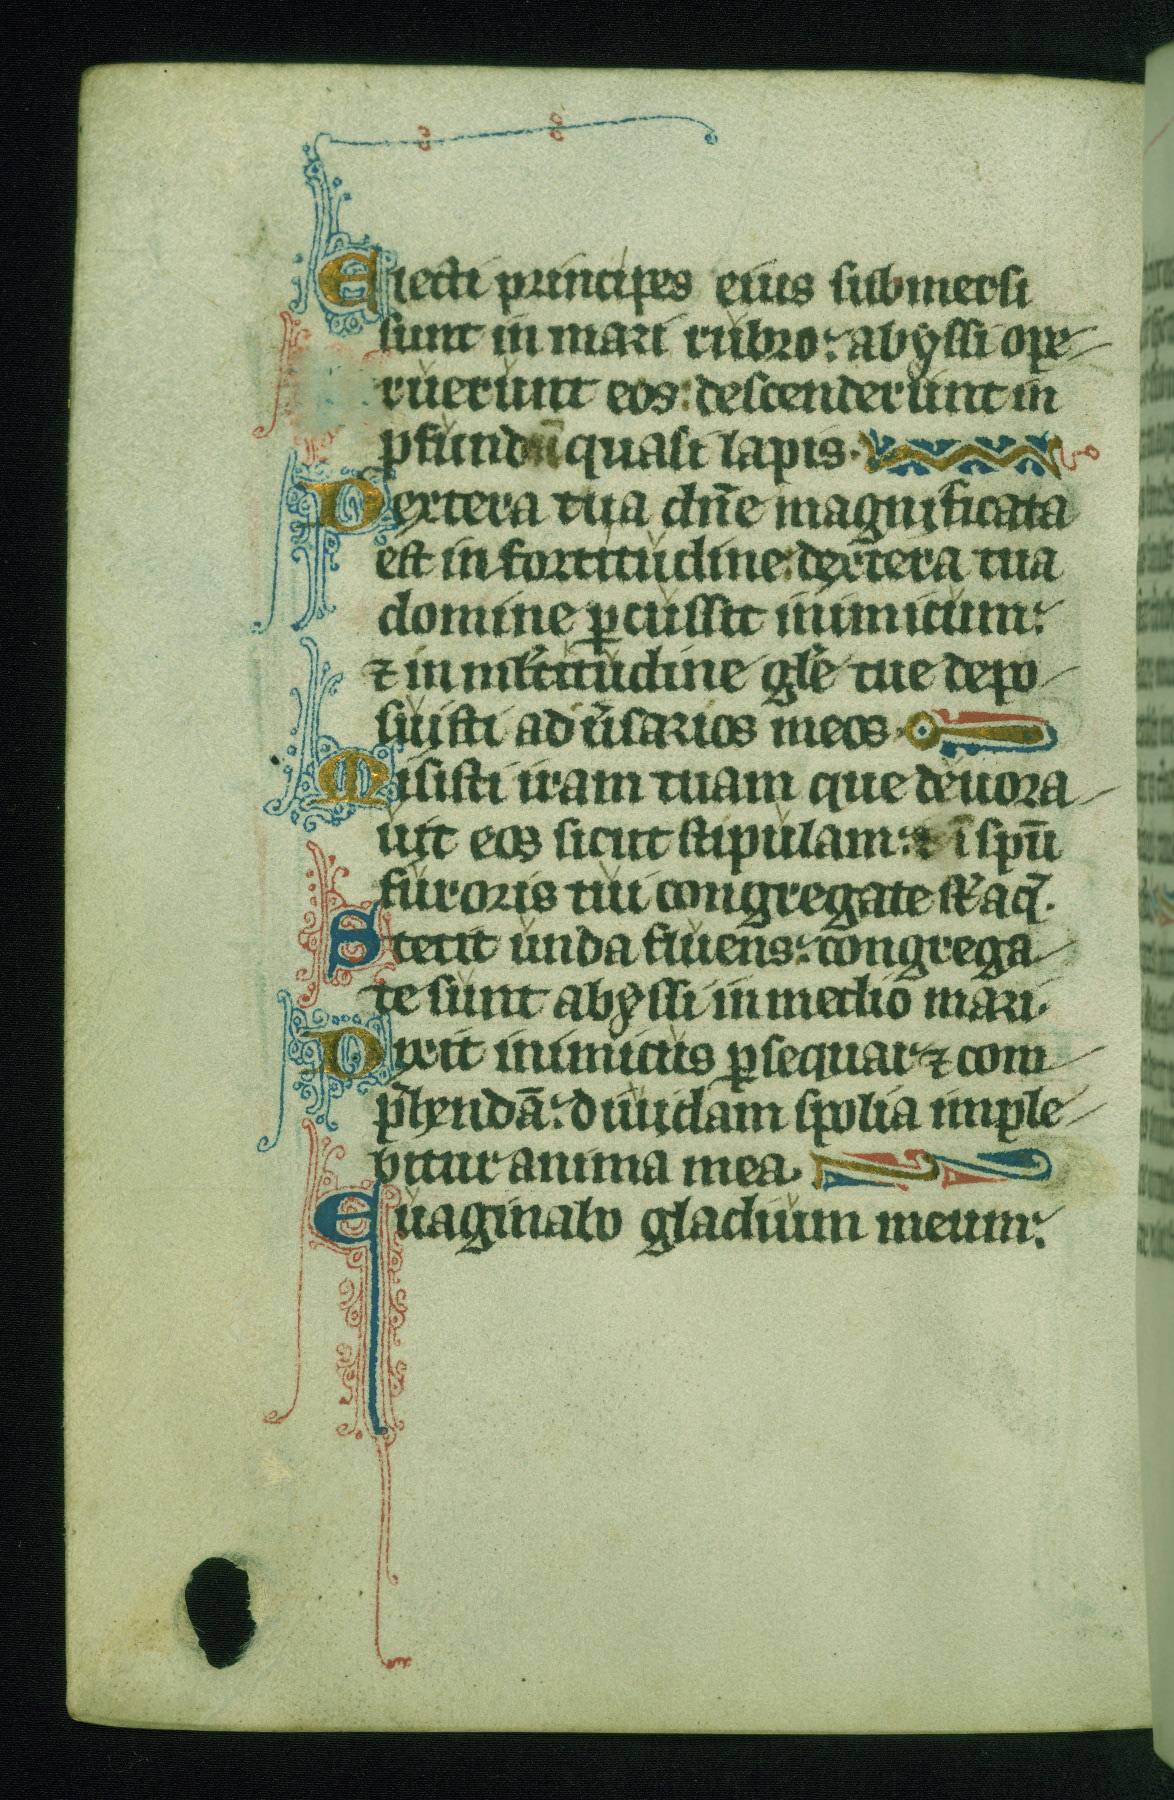 Eiecti principes eius submersi
sunt in mari rubro: abyssi ope
ruerunt eos: descenderunt in
pfundũ quasi lapis.
Dextera tua dñe magnificata
est in fortitudine: dextera tua
domine ꝑcussit inimicum:
⁊ in mĺtitudine gĺe tue depo
suisti aduֿsarios meos
Misisti iram tuam que deuora
uit eos sicut stipulam: ⁊ ĩ spũ
furoris tui congregate st̃ aq̃.
Stetit unda fluens: congrega
te sunt abyssi in medio mari.
Dixit inimicus ꝑsequar ⁊ com
p̃hendã: diuidam spolia imple
bitur anima mea.
Euaginabo gladium meum: